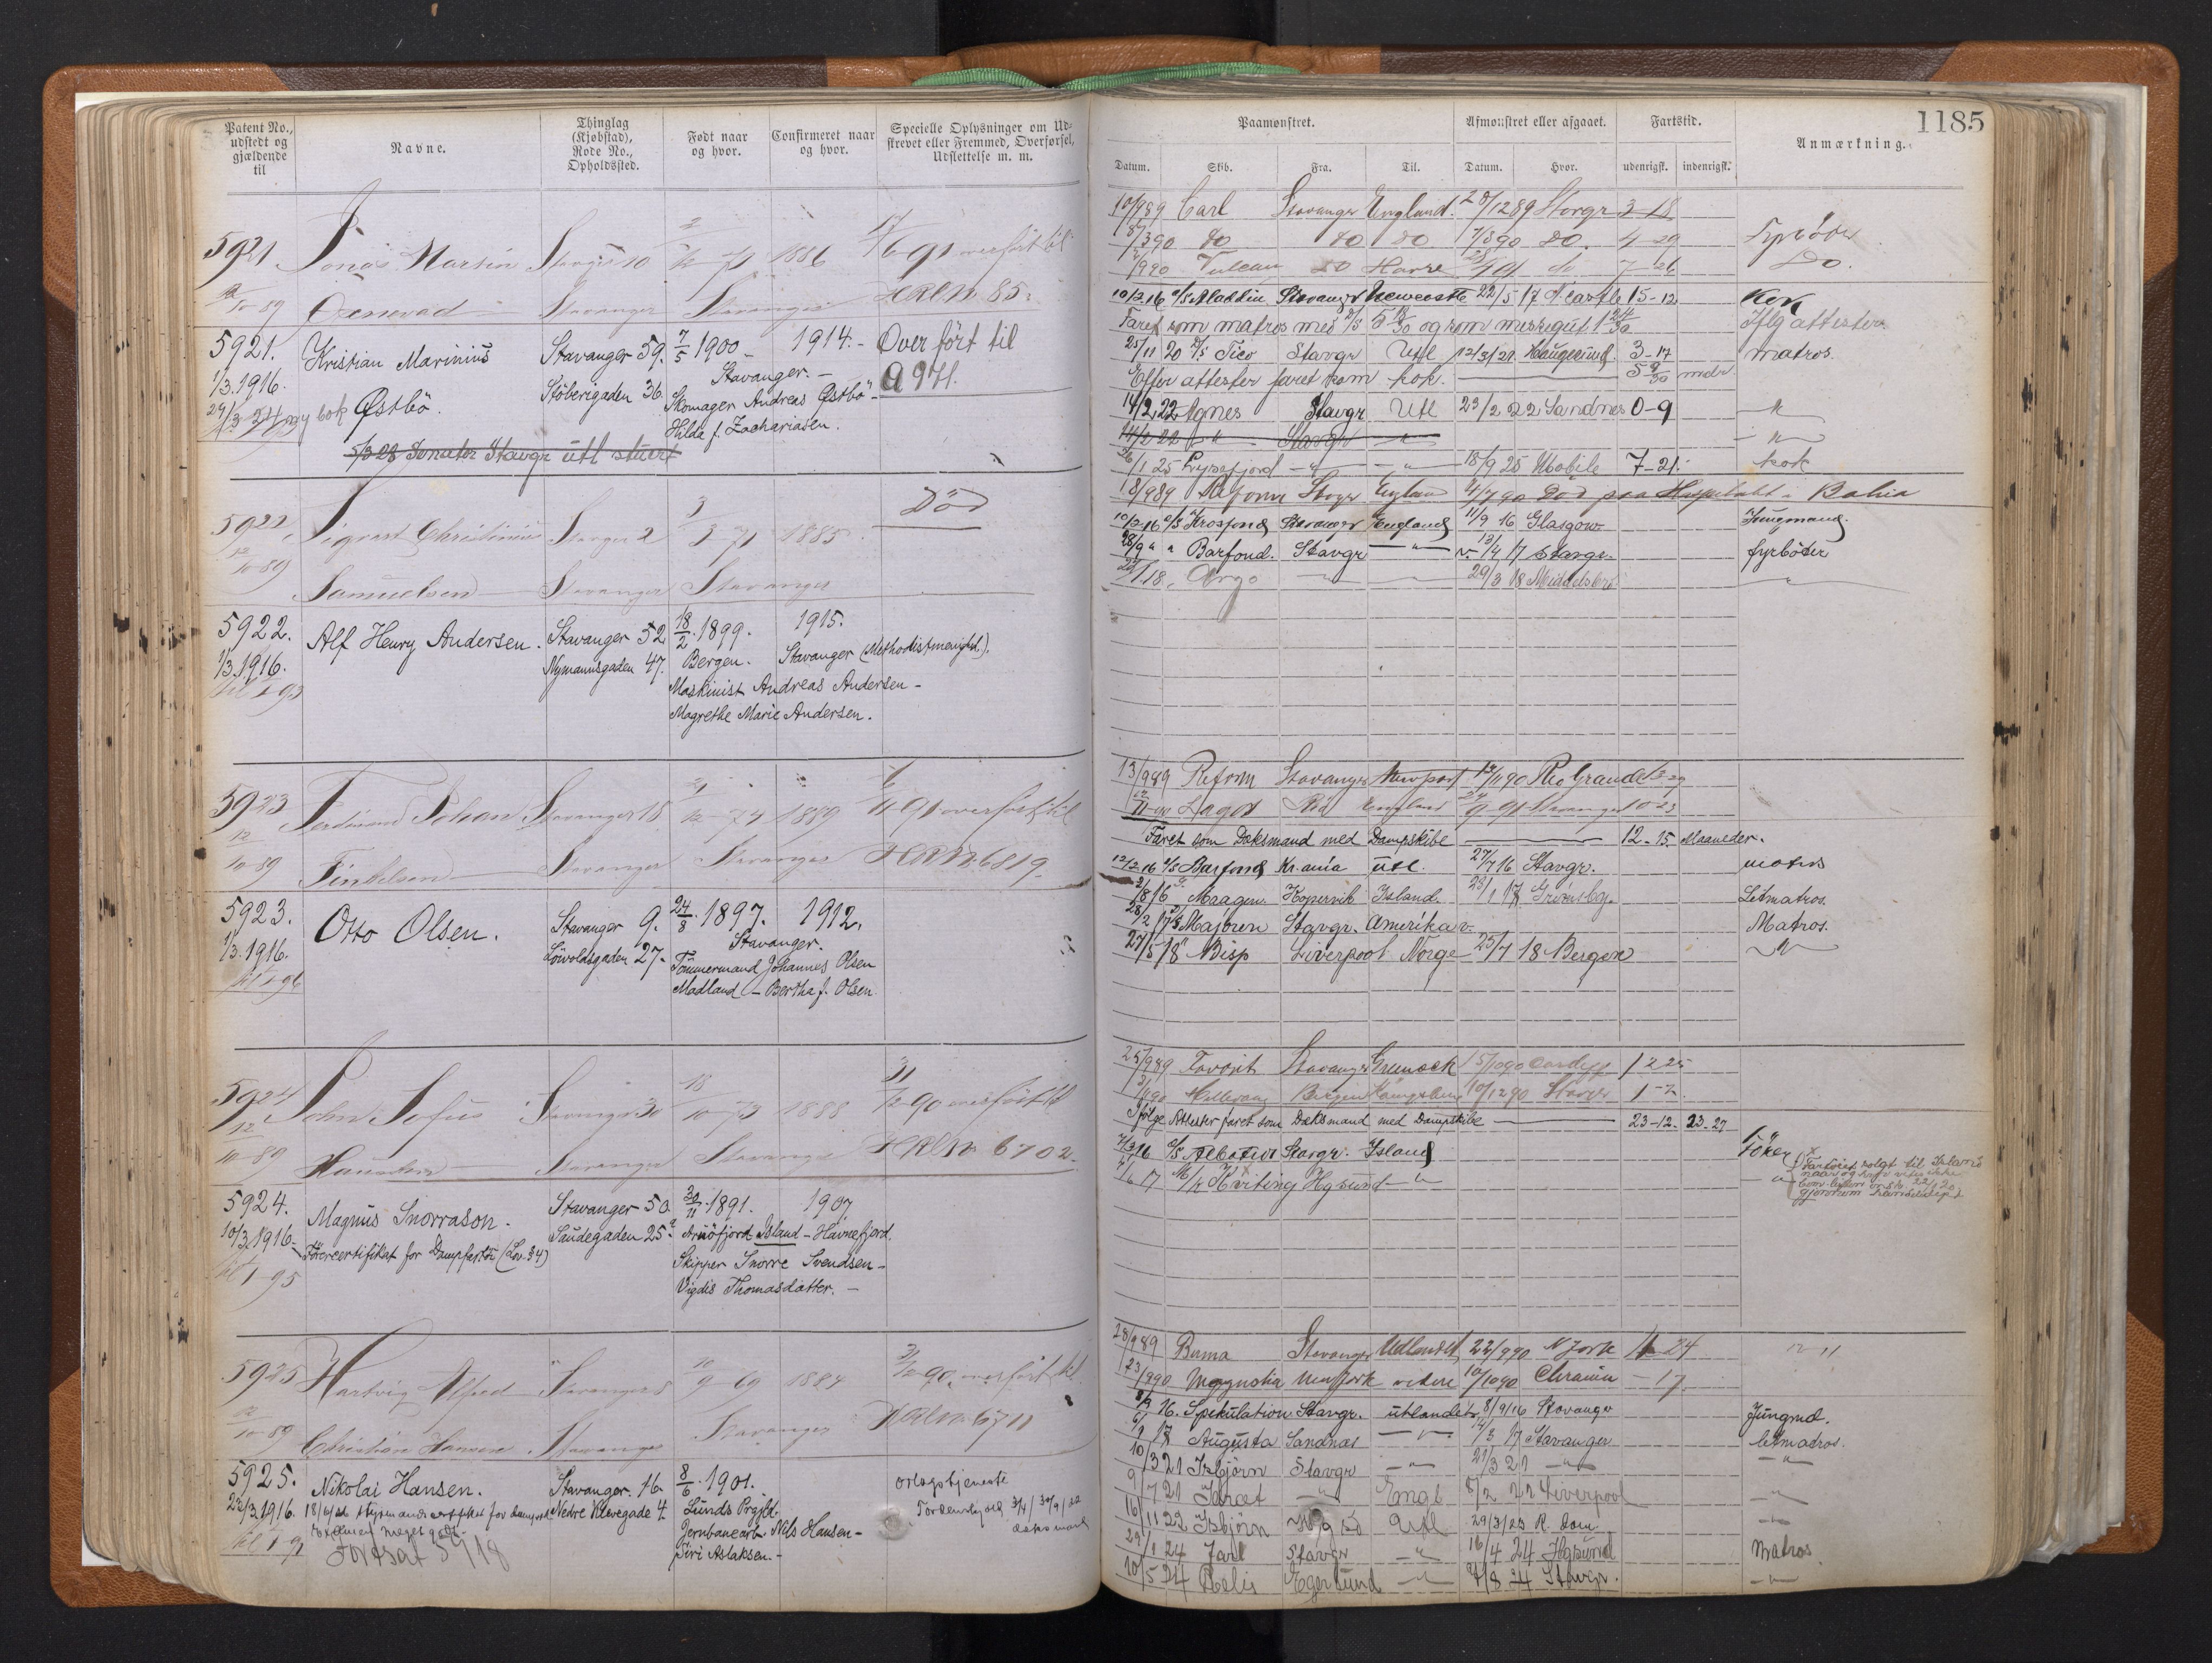 Patent No., udstedt og gjældende til
Navne.
Thinglag (Kjøbstad), Rode No., Opholdssted.
Født naar og hvor.
Confirmeret naar og hvor.
Specielle Oplysninger om Udskrevet eller Fremmed, Overførsel, Udslettelse m. m.
5921 Jonas Martin Stavgr 10 2/12 71 1886 17/6 91 overført til
12/10-89 Stavanger Stavanger HRL No 85.
5921. Kristian Marinius Stavanger 59. 7/5 1900 - 1914.- Overført til
1/3.1916. Støberigaden 36. Stavanger.- A 971.
29/3 24 ny bok Østbö. Skomager Andreas Østbö -
Hilda f. Zachariasen.
5/3 28 Senator Stavgr utl stuert
5922, Sigvart Christinius Stavgr 2 3/3-71 1885 Död
12/10-89 Samuelsen Stavanger Stavanger
5922. Alf Henry Andersen. Stavanger 52. 18/2.1899. 1915.
1/3.1916. Nymannsgaden 47. Bergen. Stavanger (Methodistmenighd.).
til 1-93 Maskinist Andreas Andersen -
Magrethe Marie Andersen.
5923 Ferdinand Johan Stavanger 18 21/12-74 1889 6/11 91 overført til
12/10 89 Stavanger Stavanger HRL No 6819.
5923. Otto Olsen. Stavanger 9. 24/8.1897. 1912.
1/3.1916. Lövvoldsgaden 27.- Stavanger.
til 1-96 Tömmermand Johannes Olsen
Madland - Bertha f. Olsen.
5924 John Sofus Stavanger 30 18/10-73 1888 31/12-90 overført til
12/10-89 Stavanger Stavanger HRL No 6702.
5924. Magnus Snorrason. Stavanger 50. 30/11.1891. 1907
10/3.1916.- Saudegaden 25. Arnöfjord Island - Havnefjord.
Förercertifikat for Dampfartöi (Lov. §4)
til 1-95 Skipper Snorre Svendsen -
Vigdis Thomasdatter. -
5925 Hartvig Alfred Stavanger 5 10/9-69 1884 31/12-90, overført til
12/10-89 Christian Hansen Stavanger Stavanger HRL No 6711
5925. Nikolai Hansen. Stavanger. 16. 8/6.1901. orlogstjeneste
22/3.1916. Nedre Klevegade 4. Lunds Prgjld.
Jernbanearb. Nils Hansen -
Fortsat 5918 Siri Aslaksen. -
1185
Paamønstret.
Afmønstret eller afgaaet.
Fartstid.
Anmærkning.
Datum. Skib. Fra. Til. Datum. Hvor. udenrigsk. indenrigsk.
10/9 89 Carl Stavanger England. 28/12 89 Stavgr 3-18
3 90 do do do 7/8 90 do. 4-29 Fyrböder
9 90 Vulcan do Havre do 7-26 Do.
10/3.16 Aladdin Stavanger Newcastle 22/5 17 N.castle 15-12 Kok
Faret som matros med Iflg attester
25/11 20 Tico Stavgr Utl 12/3/21. Haugesund. 3-17 matros.
Efter attester faret som kok. 5 9/30 mdr
14/2 22 Agnes Stavgr Utl 23/2 22 Sandnes 0-9
14/2 22 Stavgr
26/1 25 Lysefjord 18/9 25 Mobile 7-21. kok
18/9 89 Reform Stavgr England 4/7 90 Död paa Hospitalet i Bahia
10/3.16 Krosfond Stavanger England 11/9 16 Glasgow Jungmand.
28/9 " Barfond. Stavgr 13/4 17 Stavgr. fyrböder
1 18, Argo 29/3 18 Middelsbro
13/9 89 Reform Stavanger Newport 14/11 90 Rio Grande 13-29
England Stavanger 10-23
Faret som Dæksmand med Dampskibe 12-15 Maaneder.
12/3.16 Barfond Kr.ania utl. 27/7 16 Stavgr. matros
2/8 16 Maagen Kopervik Island. 23/1 17 Grimsby. Letmatros.
28/2 17 Majoren Stavgr. Amerika Matros.
27/5 18 Bisp Liverpool Norge 25/7 18 Bergen
25/9 89 Favorit Stavanger Greenock 15/10 90 Cardiff 12 25
Bergen 10/12 90 Stavgr 1-2.
Ifölge Attester faret som Dæksmand med Dampskibe 23-12. 23-27
3 16 Albatros Stavgr. Island
17 Hviting Hgsund
28/9 89 Buma Stavanger Udlandet 22/9 90 N Jork 11-24
23/9 90 Magnolia New York videre 10/10 90 Chrania - 17
16. Spekulation Stavgr. utlandet. 8/9/16 Stavanger Jungmd.
6/1 17 Augusta Sandnæs 14/3 17 Stavanger letmatros.
10/3 21 Isbjörn Stavgr 21/3 21
9/7 21 Jaræt Engl 8/2 22 Liverpool
16/11 22 Isbjörn Utl 29/3/23 R. dam
29/1 24 Jarl Stavgr 16/4 24 Hgsund Matros.
10/5 24 Egersund 8 24 Stavgr.